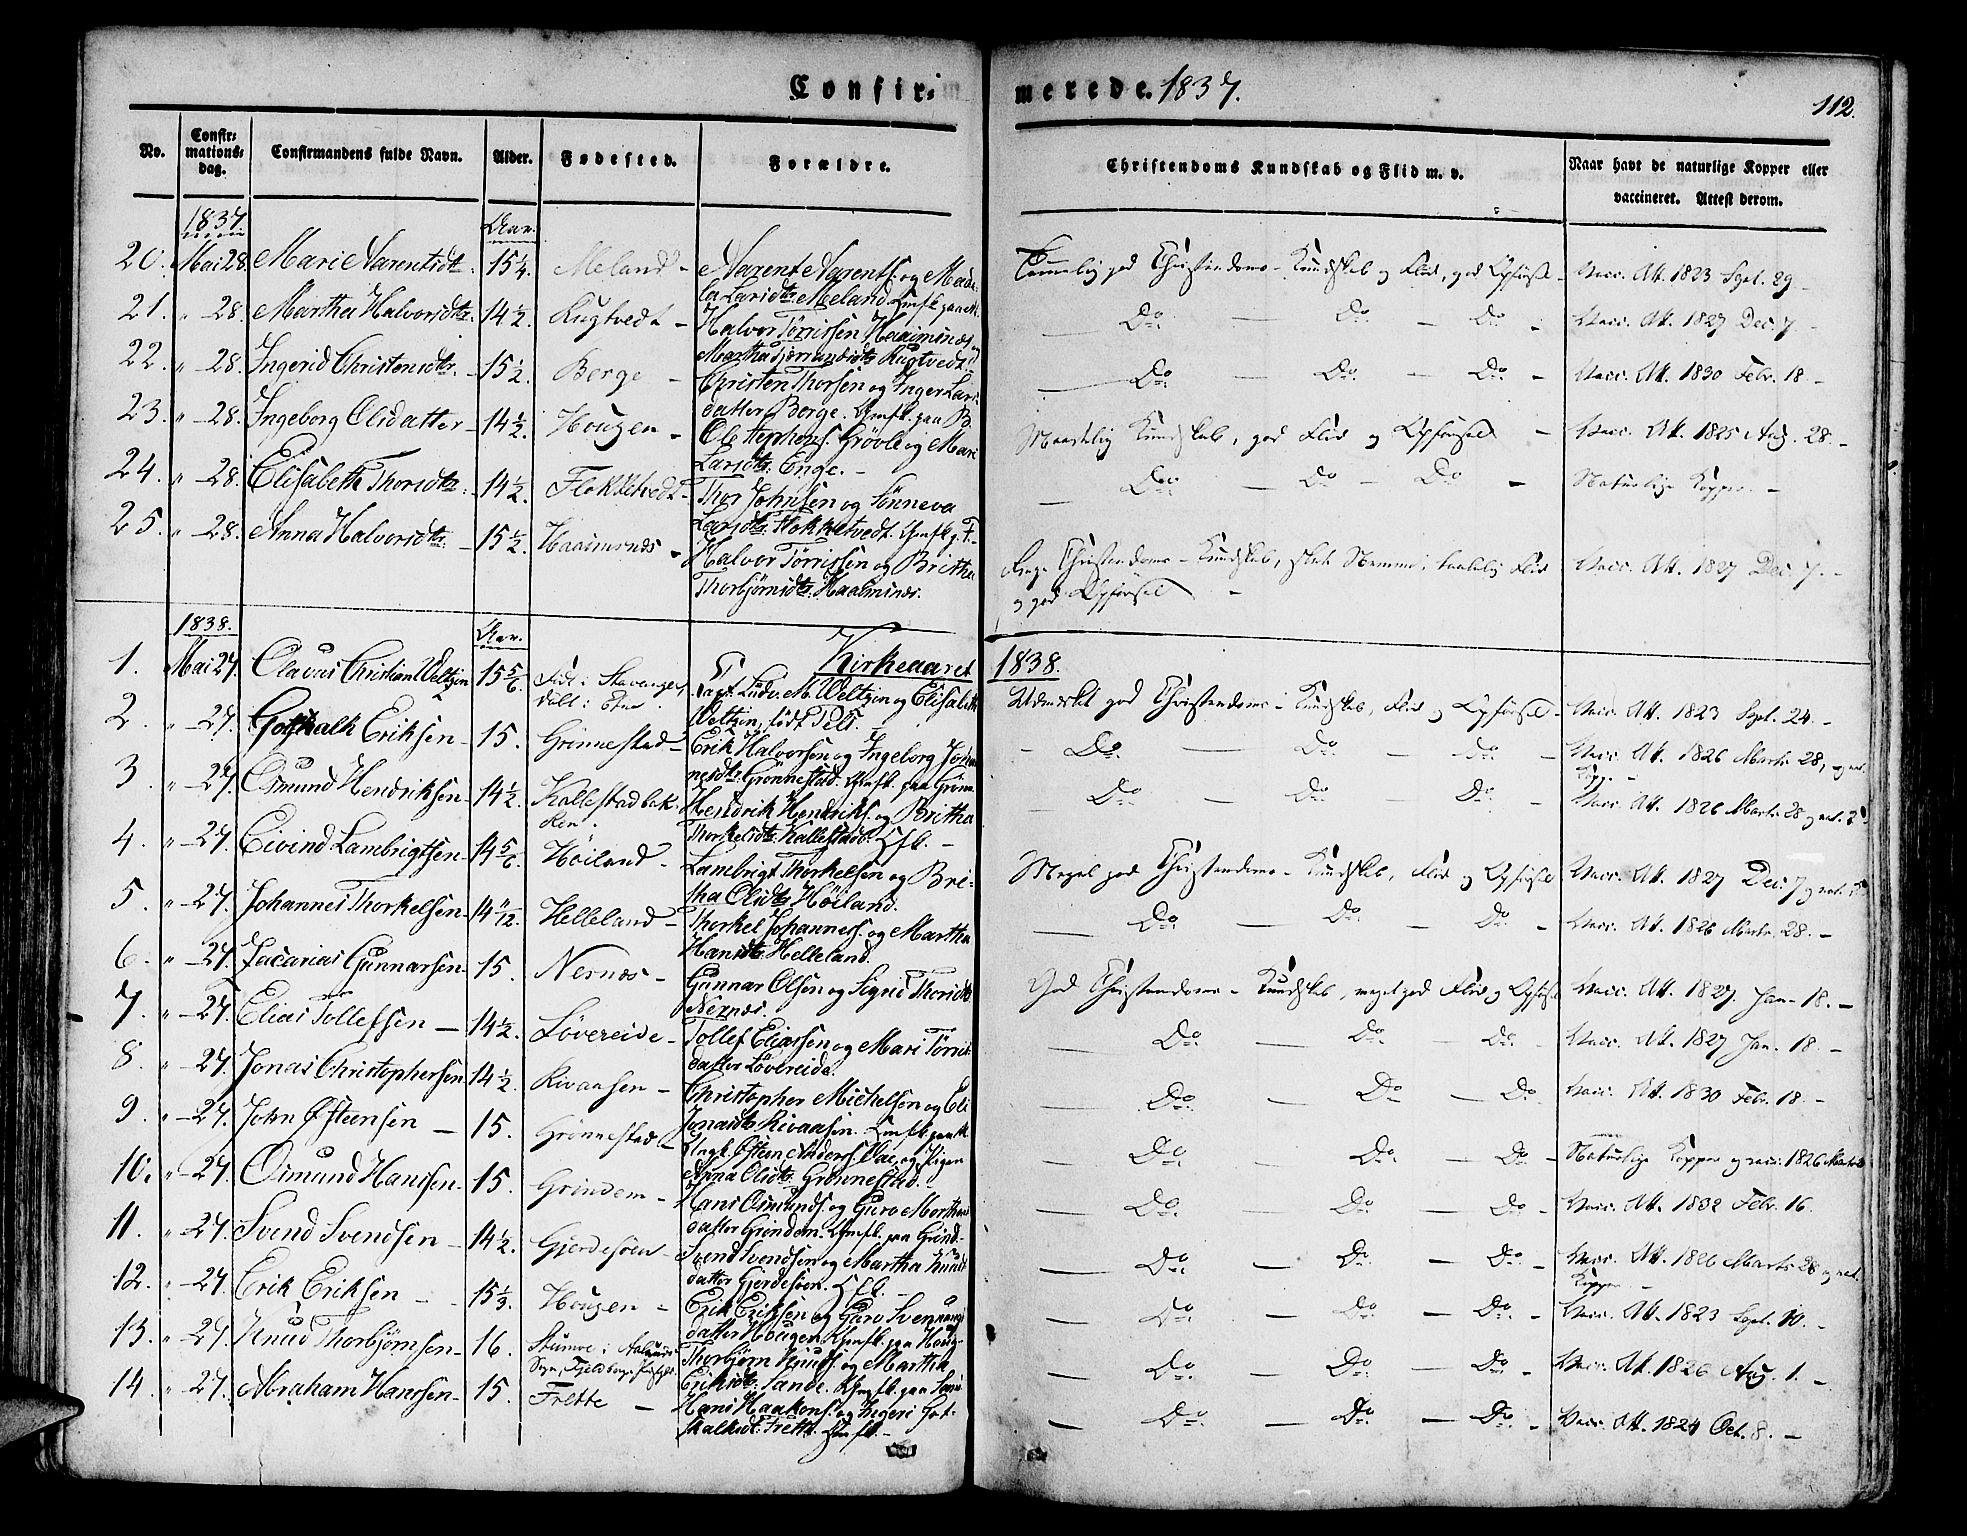 Confirmerede. 1837.
112.
No. Confirmationsdag. Confirmandens fulde Navn. Alder. Fødested. Forældre. Christendoms Kundskab og Flid m. v. Naar havt de naturlige Kopper eller vaccineret. Attest derom.
1837. Aar.
20. Mai 28. Mari Narentsdtr. 15 1/4. Meland - Narent Narents. og Mada-
la Larsdtr. Meland
Temmelig god Christendoms-Kundskab og Flid, god Opførsel - Vacc. Att. 1823 Sept. 29 -
21. " - 28. Martha Halvorsdtr. 14 1/2. Rugtvedt - Halvor Tørrissen Haaimsnæs og
Martha Rugtvedt.
Do. - Do. - Do. - Vacc. Att. 1827 Dec. 7 -
22. " 28. Ingerid Christensdtr. - 15 1/2. Berge - Christen Thorsen og Inger Lars-
datter Berge.
Do. - Do. - Do. - Vacc. Att. 1830 Febr. 18. -
23. " - 28. Ingeborg Olsdatter - 14 1/2. Hougen - Ole Stephens. Grøvle og Mari
Larsdtr. Enge. -
Maadelig Kundskab, god Flid og Opførsel - Vacc. Att. 1825 Aug. 28. -
24. " - 28. Elisabeth Thorsdtr. - 14 1/2. Flokketvedt - Thor Johnsen og Sønneva
Larsdtr. Flokketvedt.
Do. - Do - Do - Naturlige Kopper -
25. " - 28. Anna Halvorsdtr. - 15 1/2. Haaimsnæs - Halvor Tørrissen og Britha
Thorbjørnsdtr. Haaimsnæs.
Christendoms-Kundskab, Flid
og god Opførsel - Vacc. Att. 1827 Dec. 7. -
1838. Aar. Kirkeaaret 1838.
1. Mai 27. Olavus Christian Weltzin 15 5/6. Capt. Ludv. M. Weltzin og Elisabeth
Weltzin, født
Udmærket god Christendoms-Kundskab, Flid og Opførsel - Vacc. Att. 1823 Sept. 24. -
2. " - 27. Gotskalk Eriksen - 15. Grønnestad - Erik Halvorsen og Ingeborg Johan-
nesdtr. Grønnestad.
- Do. - Do - Do - Vacc. Att. 1826 Marts 28, og nat.
Kopper -
3. " - 27. Osmund Hendriksen - 14 1/2. Kallestadbak-
ken. Hendrik Hendriks. og Britha
Thorkelsdtr. Kallestadb.
Do. - Do. - Do. - Vacc. Att. 1826 Marts 28 og nat. K.
4. " - 27. Eivind Lambrigtsen - 14 5/6. Høiland - Lambrigt Thorkelsen og Bri-
tha Olsdtr. Høiland.
Meget god Christendoms-Kundskab, Flid og Opførsel Vacc. Att. 1827 Dec. 7 og nat. K.
5. " - 27. Johannes Thorkelsen - 14 11/12. Helleland - Thorkel Johanness. og Martha
Hansdtr. Helleland.
Do. - Do - Do. - Vacc. Att. 1826 Marts 28. -
6. " - 27. Zacarias Gunnarsen - 15. Nernæs - Gunnar Olsen og Signe Thorsdtr.
Nernæs.
God Christendoms-Kundskab, meget god Flid og Opførsel Vacc. Att. 1827. Jan. 18. -
7. " - 27. Elias Tollefsen - 14 1/2. Løvereide - Tollef Eliassen og Mari Tørris-
datter Løvereide.
Do. - Do. - Do. - Vacc. Att. 1827 Jan. 18. -
8. " - 27. Jonas Christophersen 14 1/2. Rivaasen - Christopher Mickelsen og Eli
Jonasdtr. Rivaasen.
Do. - Do - Do - Vacc. Att. 1830 Febr. 18. -
9. " - 27. John Østensen - 15. Grønnestad - Ungk. Østen Anderss. og Pigen
Anna Olsdtr. Grønnestad. -
Do. - Do. - Do. - Naturlige Kopper og vacc. 1826 Marts
10. " - 27. Osmund Hanssen - 15. Grindem - Hans Osmunds. og Guro Marthas-
datter Grindem.
Do. - Do. - Do. - Vacc. Att. 1832 Febr. 16.
11. " - 27. Svend Svendsen - 14 1/2. Gjerdesøen - Svend Svendsen og Martha Knuds-
datter Gjerdesøen.
Do. - Do. - Do. - Vacc. Att. 1826 Marts 28 og nat.
Kopper -
12. " - 27. Erik Eriksen - 15 1/3. Hougen - Erik Eriksen og Guro
datter Hougen.
Do - Do. - Do. - Vacc. Att. 1823 Sept. 10. -
13. " - 27. Knud Thorbjørnsen - 16. Thorbjørn Knuds. og Martha
Eriksdtr. Sande.
Do. - Do. - Do. - Vacc. Att. 1826 Aug. 1. -
14. " - 27. Abraham Hanssen - 15. Frette - Hans Haakons. og Ingeri Got-
skalksdtr. Frette.
Do. - Do. - Do. - Vacc. Att. 1824 Oct. 8. -